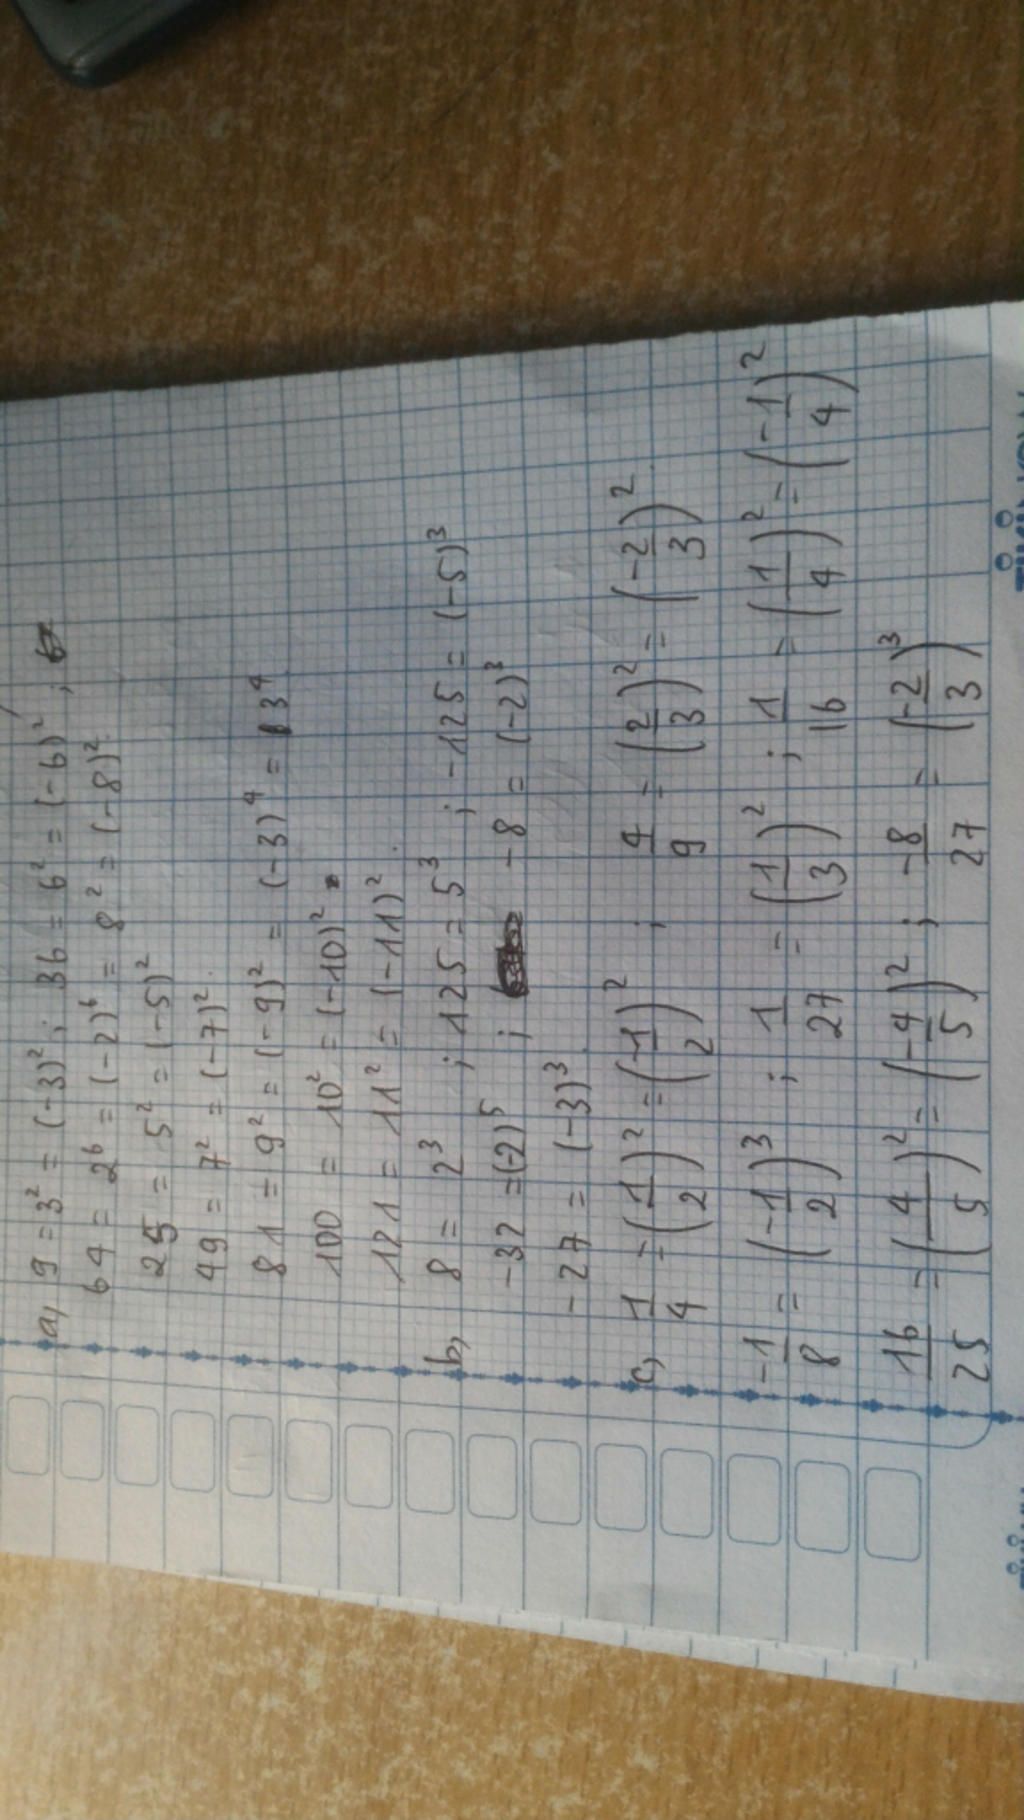 a, 9 = 3² = (-3)² ; 36 = 6² = (-6)² ;
64 = 2⁶ = (-2)⁶ = 8² = (-8)²
25 = 5² = (-5)²
49 = 7² = (-7)²
81 = 9² = (-9)² = (-3)⁴ = 3⁴
100 = 10² = (-10)²
121 = 11² = (-11)²
b, 8 = 2³ ; 125 = 5³ ; -125 = (-5)³
-32 = (-2)⁵ ; -8 = (-2)³
-27 = (-3)³
c, 1/4 = (1/2)² = (-1/2)² ; 4/9 = (2/3)² = (-2/3)²
-1/8 = (-1/2)³ ; 1/27 = (1/3)² ; 1/16 = (1/4)² = (-1/4)²
16/25 = (4/5)² = (-4/5)² ; -8/27 = (-2/3)³